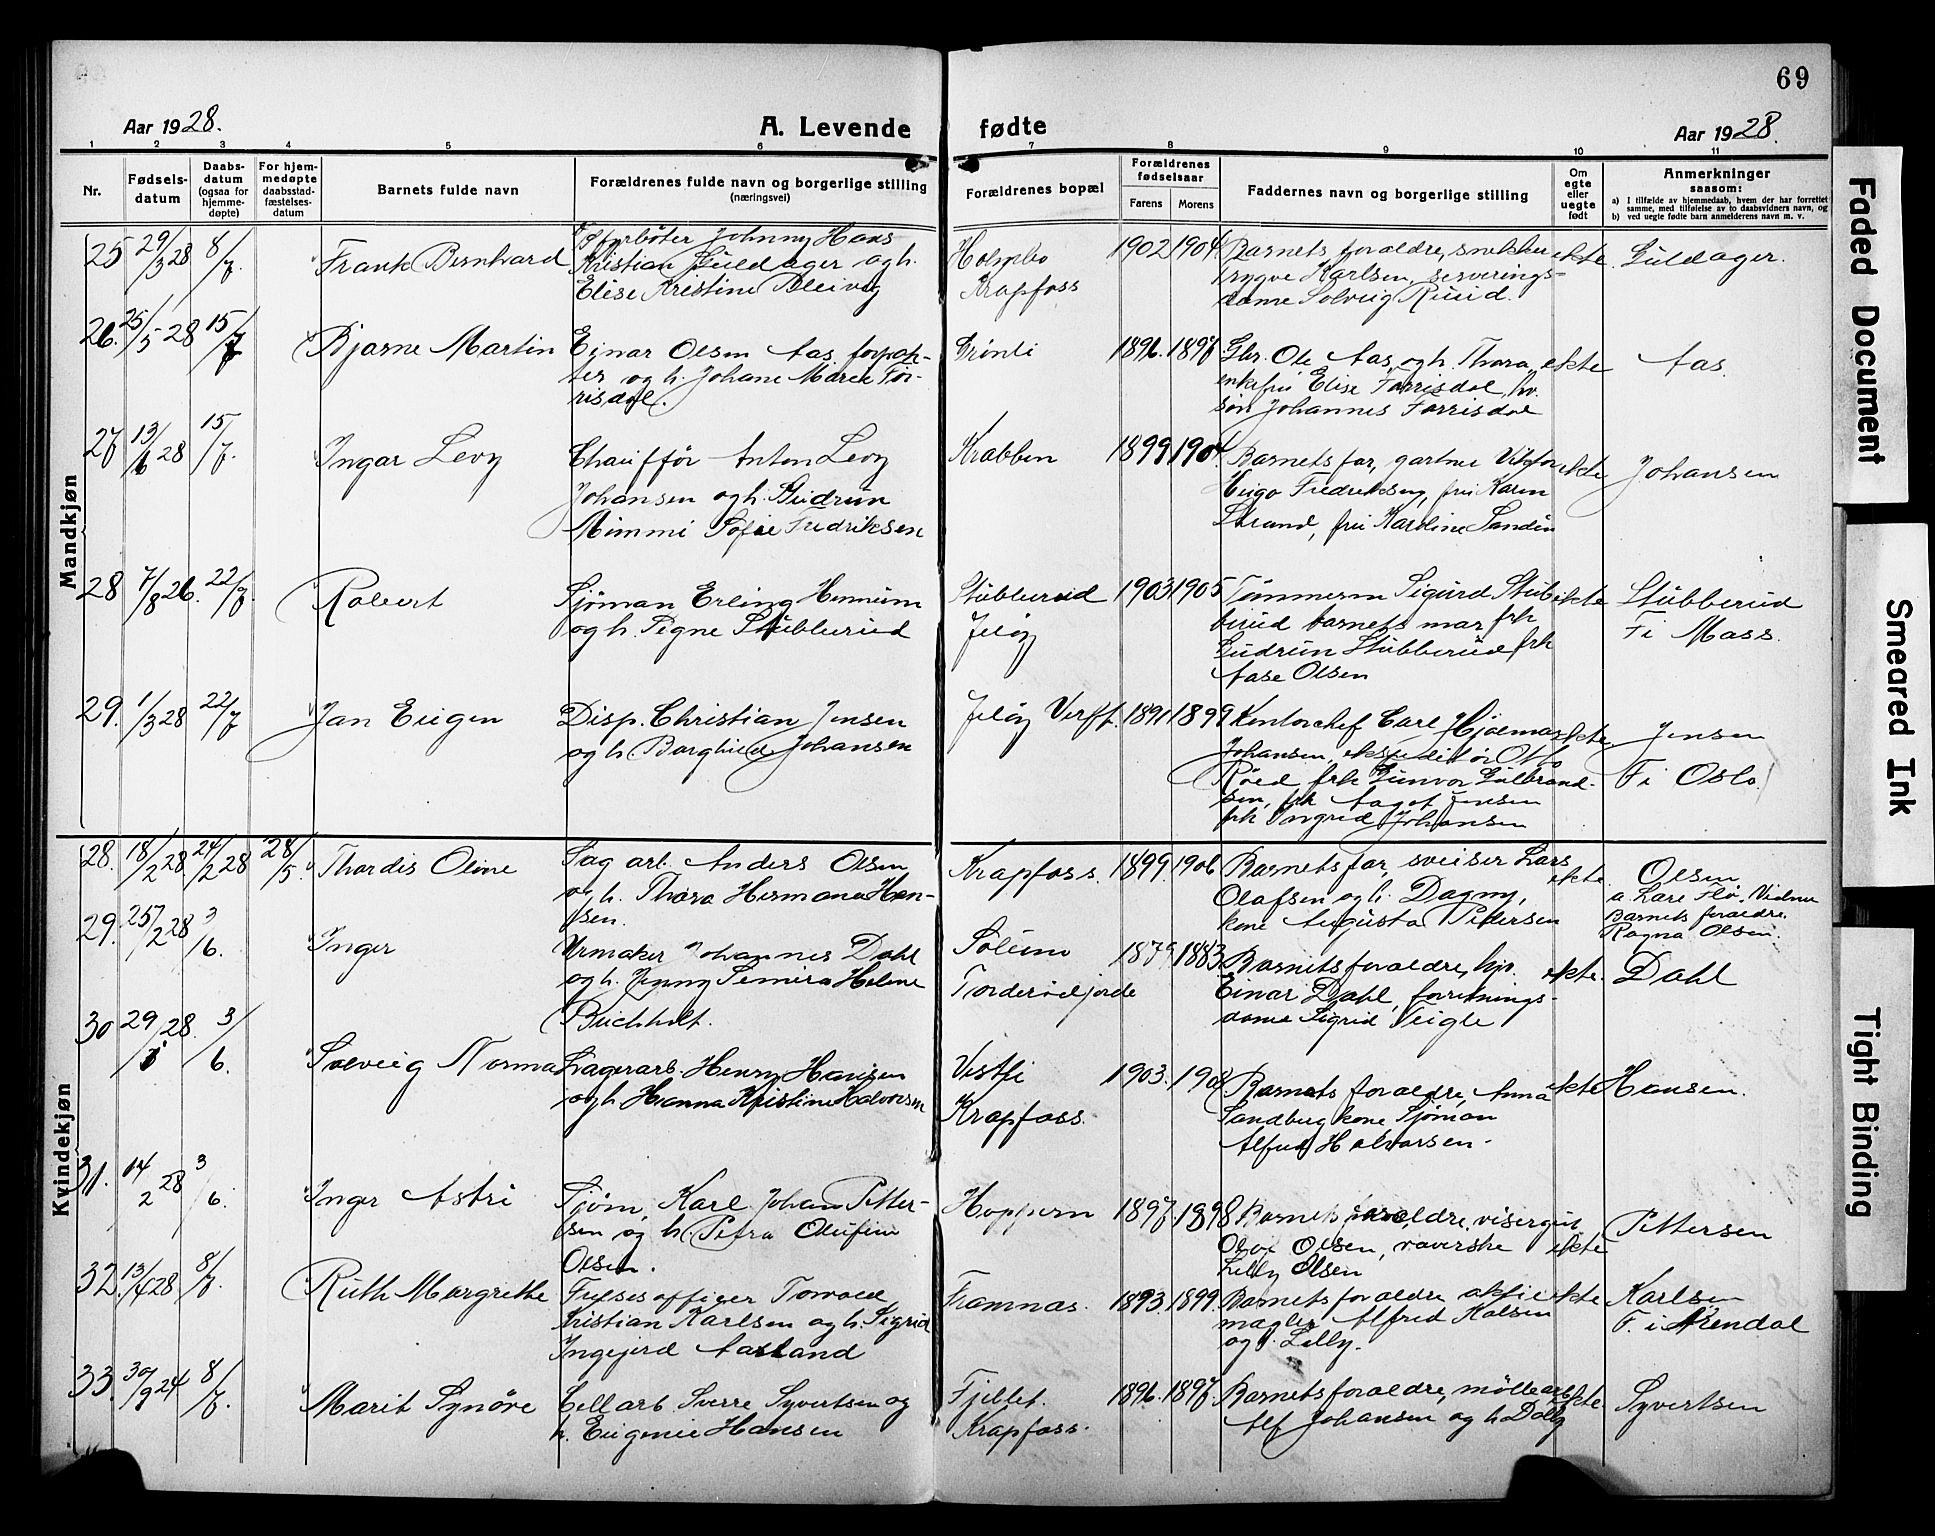 69
Aar 1928.
A. Levende fødte
Aar 1928.
1 2 3 4 5 6 7 8 9 10 11
Nr.
Fødsels-
datum
Daabs-
datum
(ogsaa for
hjemme-
døpte)
For hjem-
medøpte
daabsstad-
fæstelses-
datum
Barnets fulde navn
Forældrenes fulde navn og borgerlige stilling
(næringsvei)
Forældrenes bopæl
Forældrenes
fødselsaar
Farens Morens
Faddernes navn og borgerlige stilling
Om
egte
eller
uegte
født
Anmerkninger
saasom:
a) I tilfælde av hjemmedaab, hvem der har forrettet
samme, med tilføielse av to daabsvidners navn, og
b) ved uegte født barn anmelderens navn m. v.
Mandkjøn
25 29/3 28 8/7. Frank Bernhard
fyrbøter Johnny Hans
Kristian Guldager og h.
Elise Kristine Bleivig
Krapfoss
1902 1904
Barnets foraldre, snekker
Trygve Karlsen, serverings-
dame Solveig Ruud.
ekte. Guldager.
26. 25/5 28 15/7 Bjarne Martin
Ejnar Olsen Aas, forpak-
ter og h. Johane Marie Før-
risdal.
Grønli
1896. 1897
Gbr. Ole Aas, og h. Thora,
enkefru Elise Førrisdal,
søn Johannes Førrisdal
ekte Aas.
27 13/6 28 15/7. Ingar Levy
Chauffør Anton Levy
Johansen og h. Gudrun
Mimmi Sofie Fredriksen
Krabben
1899 1904.
Barnets far, gartner Viktor
Hugo Fredriksen, fru Karen
Strand, fru Karoline Sandin
ekte Johansen
28 7/8 26. 22/7. Robert
Sjøman Erling Hennum
og h. Signe Stubberud
Stubberud
Jeløy
1903 1905
Tømmerm Sigurd Stub
berud barnets mor frk
Gudrun Stubberud frk
Aase Olsen
ekte Stubberud
F i Moss.
29. 1/3 28 22/7 Jan Eugen
Disp. Christian Jensen
og h. Borghild Johansen
Jeløy Verft.
1891 1899
Kontorchef Carl Hjalmar
Johansen, ekspeditør Otto
Røed frk Gunvor Gulbrand-
sen, frk Aagot Jensen
frk Ingrid Johansen
ekte. Jensen
F i Oslo.
Kvindekjøn
28. 18/2 28 24/2 28 28/5. Thordis Oline
Sag arb. Anders Olsen
og h. Thora Hermana Han-
sen.
Krapfoss.
1899. 1906
Barnets far, sveiser Lars
Olafsen og h. Dagny,
kone Augusta Pedersen
ekte. Olsen
Barnets foraldre.
Ragna Olsen.
29. 25/2 28 3/6. Inger
Urmaker Johannes Dahl
og h. Jenny Semira Helene
Buchholt.
Solum
1879. 1883.
Barnets foraldre,
Einar Dahl, forretnings-
dame Sigrid Teigle
ekte. Dahl
30 29/ 28. 3/6. Solveig Norma
Lagerarb. Henry Hansen
og h. Hanna Kristine Halvorsen
Vestli
Krapfoss.
1903. 1904
Barnets foraldre, Anna
Sandberg kone Sjøman
Alfred Halvorsen.
ekte Hansen.
31. 14/2 28 3/6. Inger Astri
Sjøm, Karl Johan Petter-
sen og h. Petra Olufine
Olsen.
Hoppern
1897. 1898
Barnets foraldre, visergut
Olsen, væverske
Lilly Olsen
ekte Pettersen
32. 13/4 28 8/7. Ruth Margrethe
Fyrbøter Torvald
Kristian Karlsen og h. Sigrid
Ingejerd Aasland
Framnæs.
1893. 1899.
Barnets foraldre aktie
magler Alfred Kalsen
og h. Lilly.
ekte Karlsen
F. i Arendal
33. 30/9 24 8/7. Marit Synøve
Cellarb. Sverre Syvertsen og
h. Eugenie Hansen
Fjellet.
Krapfoss.
1896. 1897.
Barnets foraldre, møllearb
Alf Johansen og h. Dolly
ekte. Syvertsen
Faded Document
Smeared Ink
Tight Binding